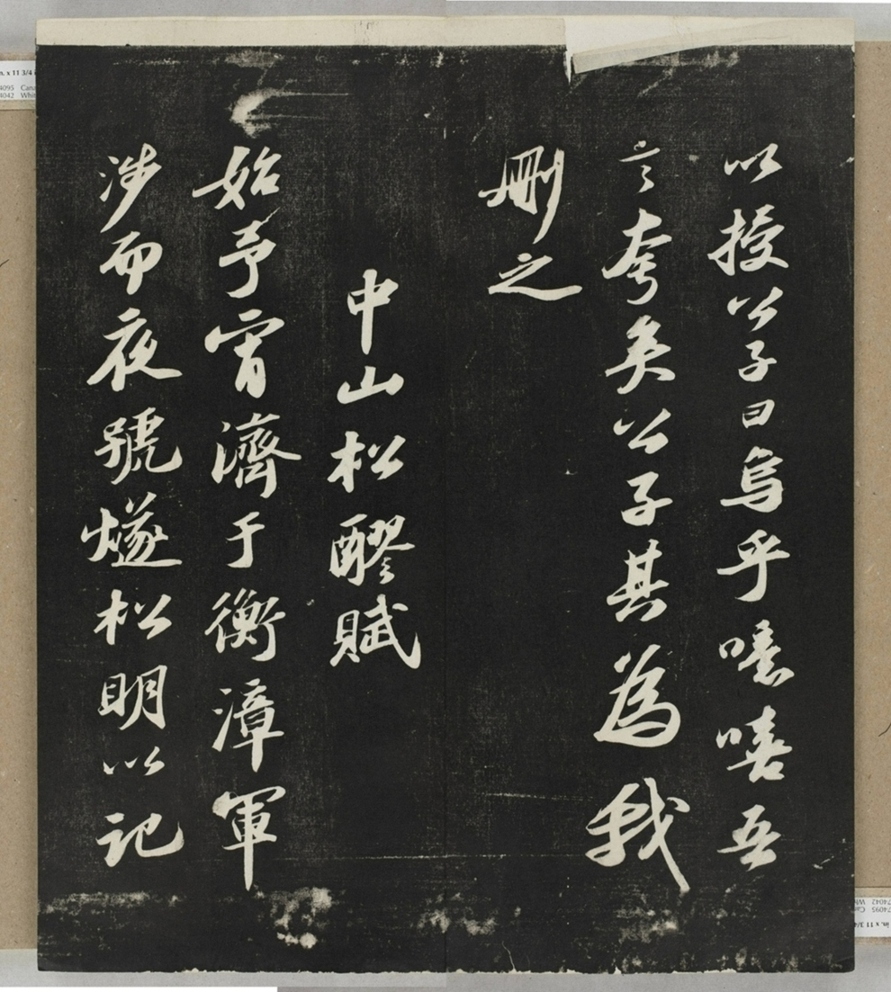 以授公子曰烏乎噫嘻吾
言夸矣公子其為我
刪之
中山松醪賦
始予宵濟于衡漳軍
涉而夜號燧松明以記